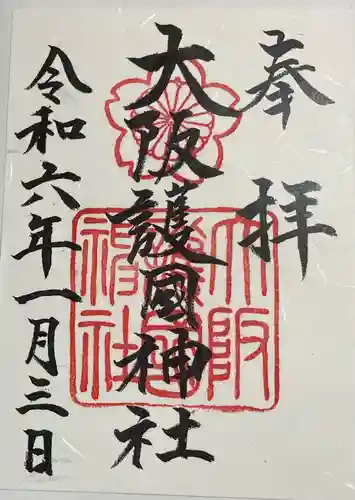 奉拝
大阪護國神社
令和六年一月三日
大阪護國神社